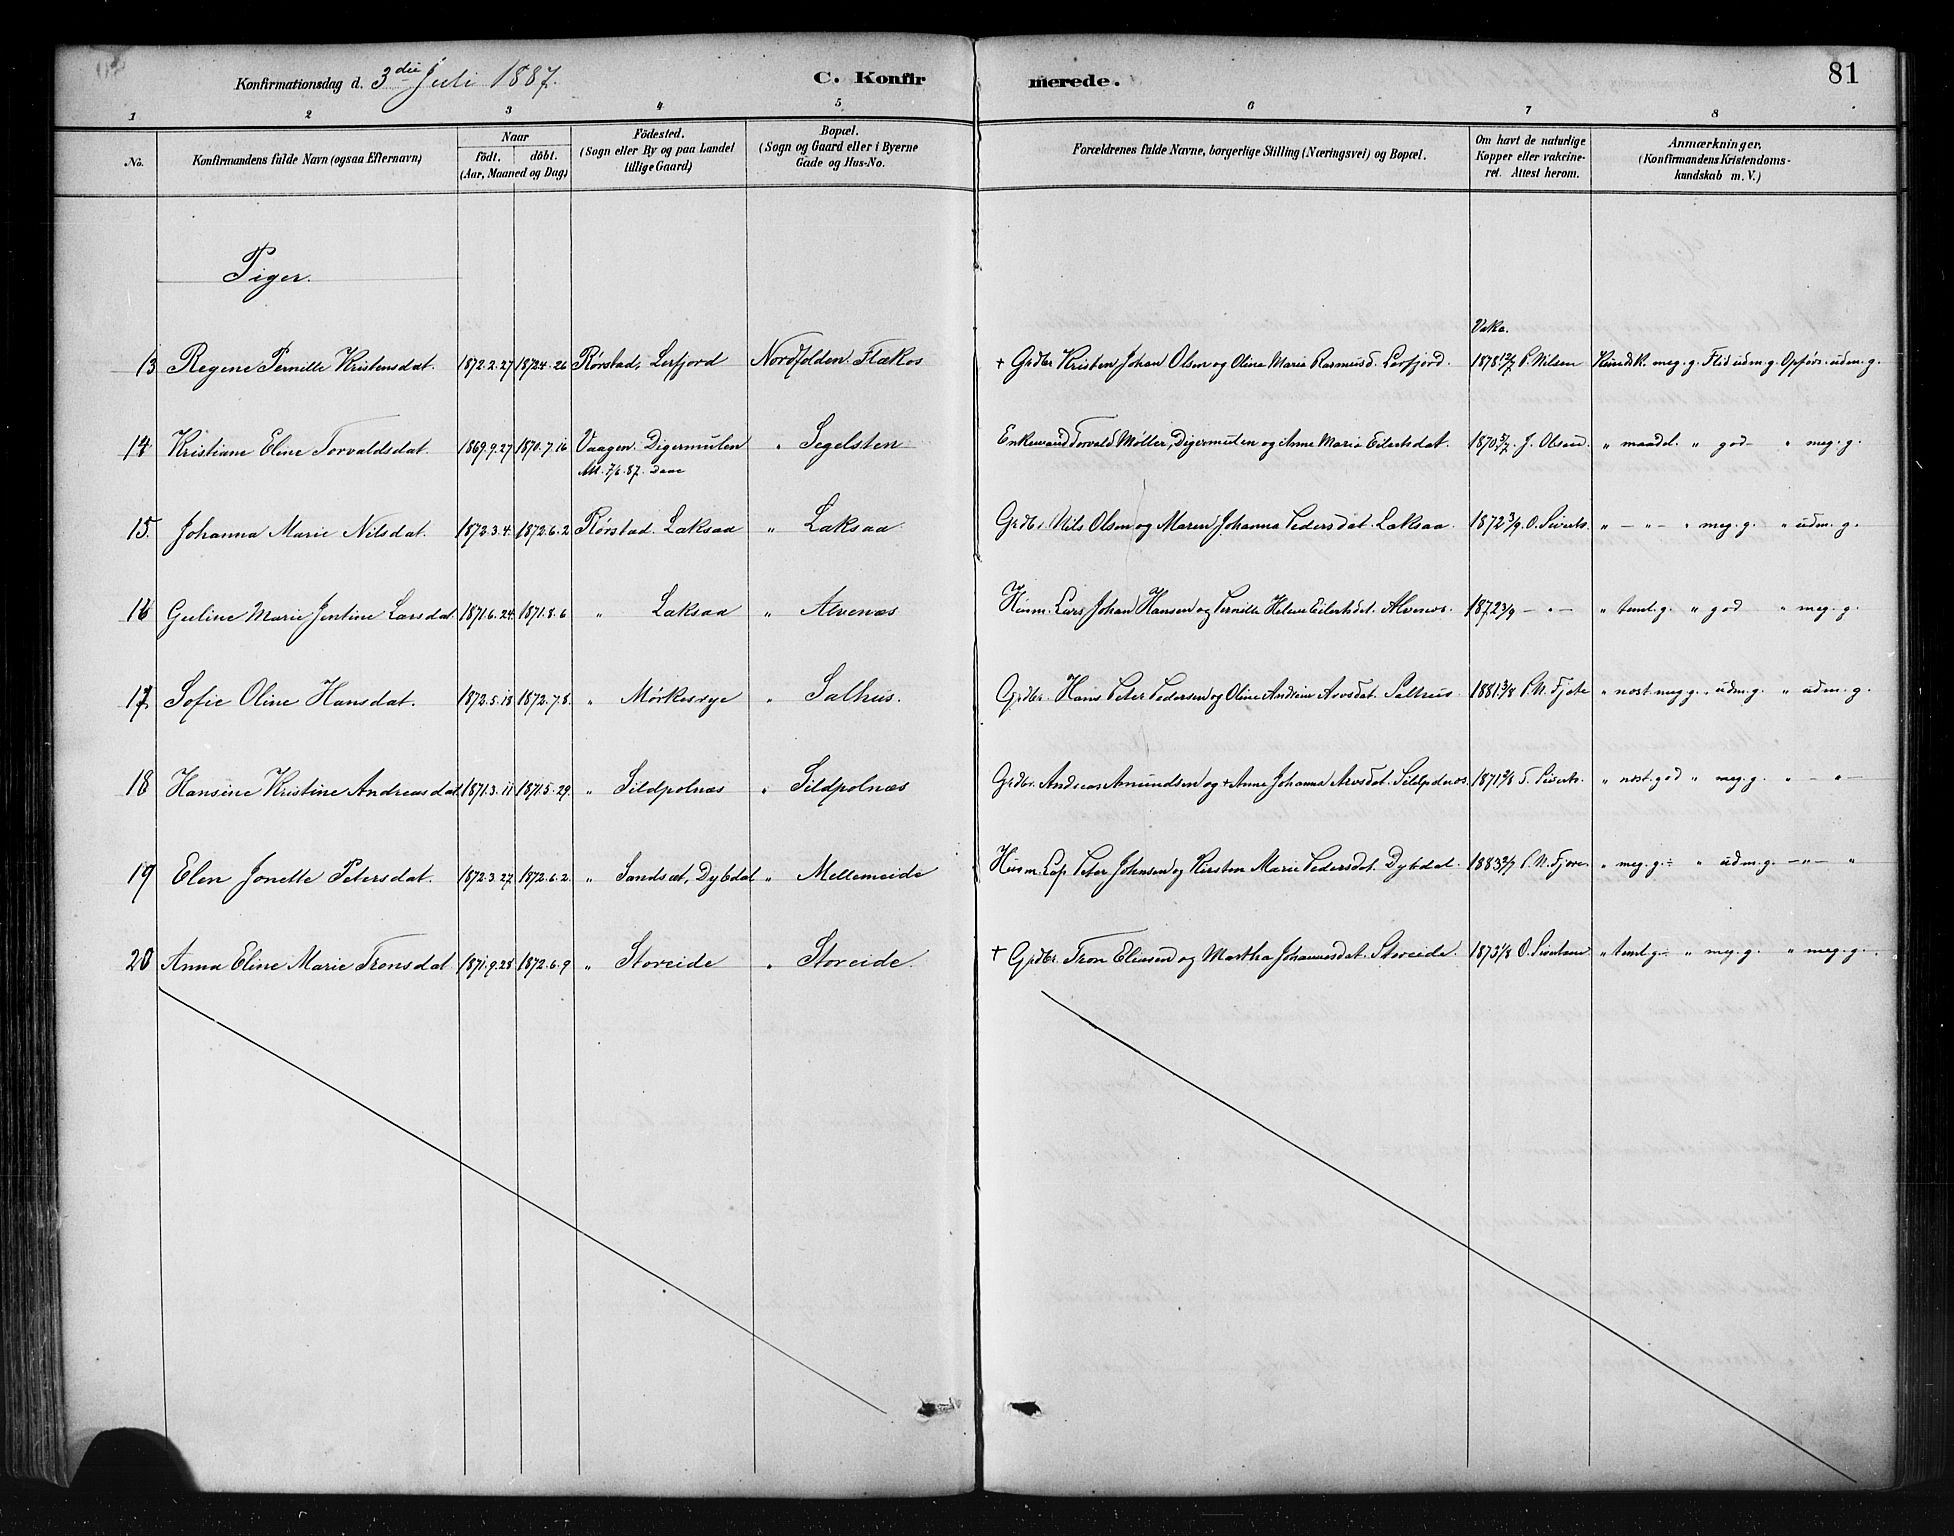 Konfirmationsdag d. 3die Juli 1887. C. Konfirmerede. 81
1 2 3 4 5 6 7 8
No. Konfirmandens fulde Navn (ogsaa Efternavn) Naar födt. döbt. (Aar, Maaned og Dag) Födested. (Sogn eller By og paa Landet tillige Gaard) Bopæl. (Sogn og Gaard eller i Byerne Gade og Hus-No. Forældrenes fulde Navne, borgerlige Stilling (Næringsvei) og Bopæl. Om havt de naturlige Kopper eller vakcineret. Attest herom. Anmærkninger. (Konfirmandens Kristendomskundskab m. V.)
Piger.
Vakc.
13 Regene Pernille Kristensdat. 1872.2.27 1872.4.26 Rörstad, Lerfjord Nordfolden. Flækos + Grdbr. Kristen Johan Olsen og Oline Marie Rasmusd. Lerfjord. 1878 12/7 P. Nilsen Kundsk. meg. g. Flid udm. g. Opförs. udm. g.
14 Kristiane Eline Torvaldsdat. 1869.9.27 1870.7.16 Vaagen. Digermulen " Segelsten Enkemand Torvald Møller, Digermulen og Anne Marie Eilertsdat. J. Olsen " maadel. " god " meg. g.
Att. 7/6. 87. Daae
15. Johanna Marie Nilsdat. 1872.3.4. 1872.6.2 Rörstad. Laksaa " Laksaa. Grdbr. Nils Olsen og Maren Johanna Pedersdat. Laksaa. 1872 3/9. O. Siverts. " - " - " meg. g. " udm. g.
16 Marie Jentine Larsdat. 1871.6.24. 1871.8.6 " Laksaa " Alvenæs Husm. Lars Johan Hansen og Pernille Helene Eilertsdat. Alvenæs. 1872 3/9 - " - " teml. g. " god " meg. g.
17. Sofie Oline Hansdat. 1872.5.18 1872.7.8. " Mørkesvye " Salhus. Grdbr. Hans Peter Pedersen og Oline Andrine Arvsdat. Salhus. 1881 3/8 P. N. " nost. meg g. " udm. g. " udm. g.
18 Hansine Kristine Andreasdat. 1871.3.11 1871.5.29. " Sildpolnæs " Sildpolnæs Grdbr. Andreas Amundsen og + Anne Johanna Arvsdat. Sildpolnæs. Siverts. " nost. god " meg. g. " - " -
19 Elen Jonette Petersdat. 1872.3.27. 1872.6.2. " Sandsæt, Dybdal " Mellemeide Husm. Lap Peter Johnsen og Kirsten Marie Pedersdat. Dybdal. P. N. " meg. g. - " udm. g. - " - "
20 Anna Eline Marie Tronsdat 1871.9.28 1872.6.9 " Storeide " Storeide. + Grdbr. Tron Eliasen og Martha Johannesdat. Storeide. 1873 1/8 O. Sivertsen " teml. g. - " meg. g. " meg. g.